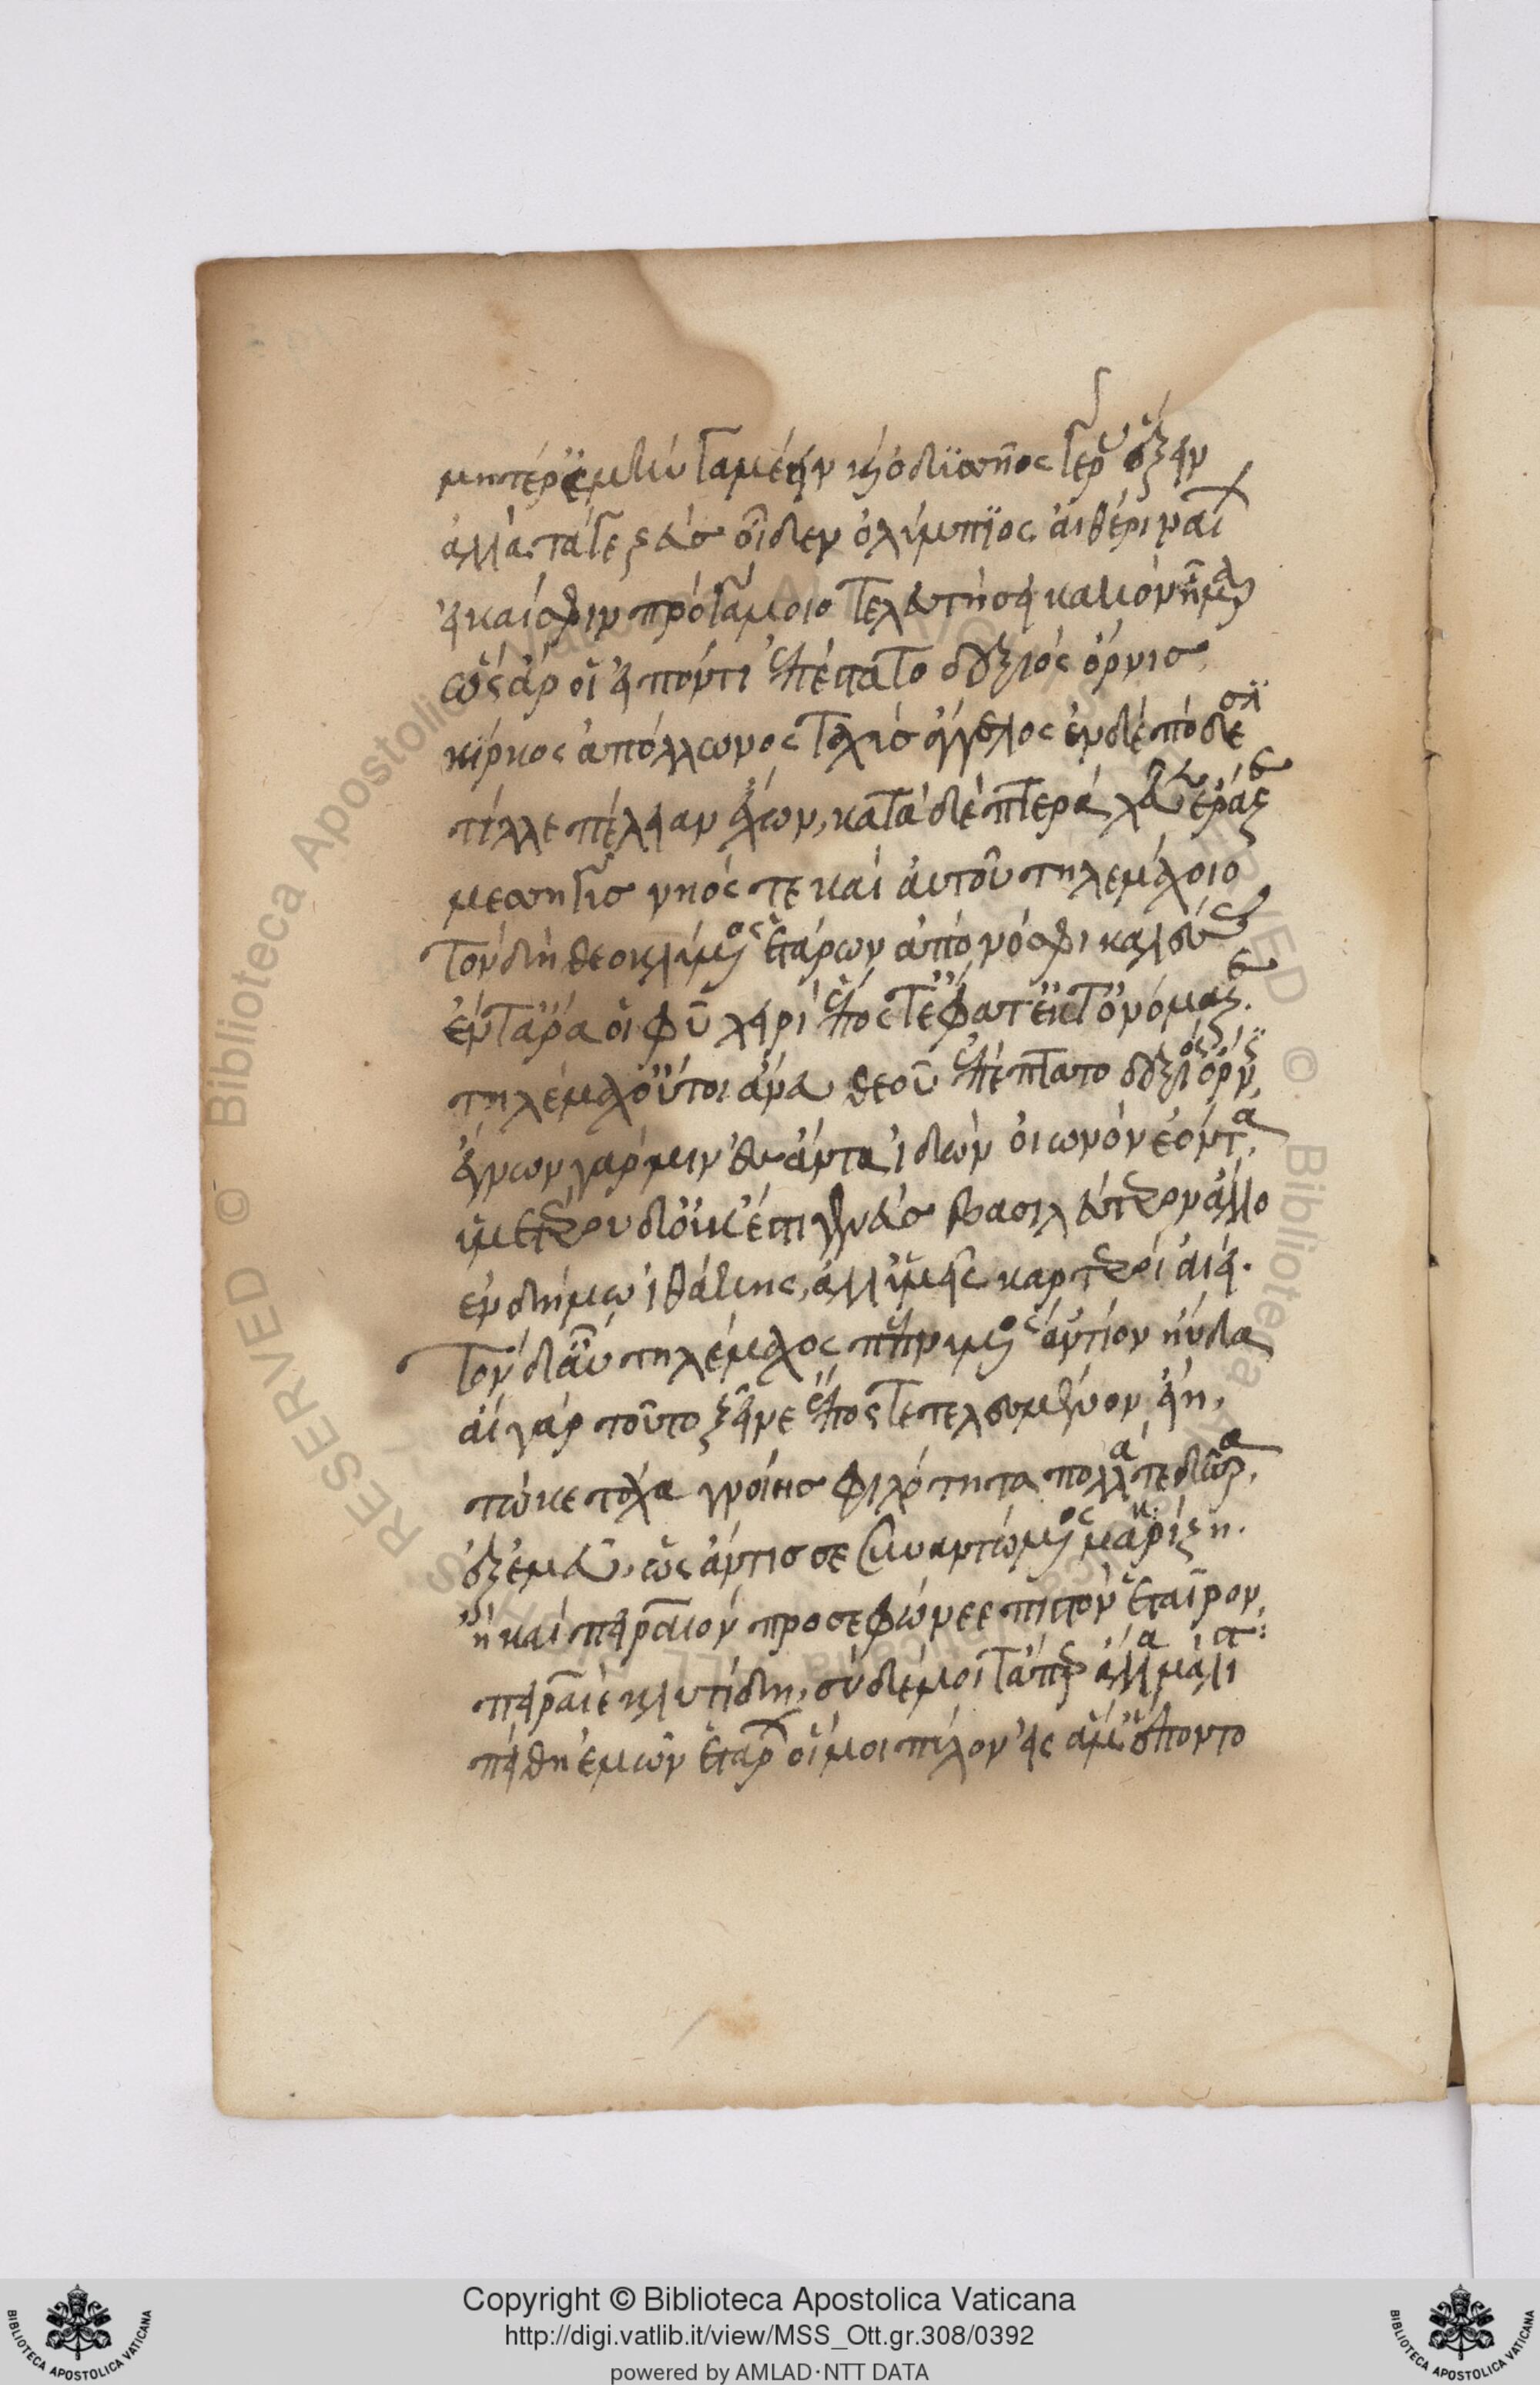 μητέρ' ἐμὴν γαμέειν ἠδ' ὀδυσσῆος γέρας ἕξειν
ἀλλὰ τάγε ζεὺσ οἶδεν ὀλύμπϊος αἰθέρι ναίων
εἰ καί σφιν πρὸ γάμοιο τελευτήσει κακὸν ἦμαρ
ὣς ἄρ οἱ εἰπόντι ἐπέπτατο δεξιὸς ὄρνισ,
κίρκος ἀπόλλωνος ταχὺσ ἄγγελος ἐν δὲ πόδεσσϊ
τίλλε πέλειαν ἔχων, κατὰ δὲ πτερὰ χεῦεν ἔραζε
μεσσηγὺσ νηός τε καὶ ἀυτοῦ τηλεμάχοιο
τὸν δὲ θεοκλύμενος ἑτάρων ἀπὸ νόσφι καλέσσας
ἔν τ' ἄρα οἱ φῦ χειρὶ ἔπος τ' ἔφατ' ἔκ τ' ὀνόμαζε.
τηλέμαχ' οὔτοι ἄνευ θεοῦ ἐπέπτατο δεξιὸς ὄρνϊς,
ἔγνων γάρ μιν ἐσάντα ἰδὼν οἰωνὸν ἐόντα,
ὑμετέρου δ' οὐκ ἔστι γένευσ βασιλεύτερον ἄλλο
ἐν δήμω ἰθάκης, ἀλλ' ὑμεῖς καρτεροὶ ἀιεί.
τὸν δ' αὖ τηλέμαχος πεπνυμένος ἀντίον ηὔδα
αἲ γὰρ τοῦτο ξεῖνε ἔπος τετελεσμένον εἴη,
τῶ κε τάχα γνοίησ φιλότητά πολλά τε δῶρα,
ἐξ ἐμεῦ, ὡς ἄν τίσ σε συναντώμενος μακαρίζη.
ἦ καὶ πείραιον προσεφώνεε πιστὸν ἑταῖρον,
πείραιε κλυτίδη, σὺ δέ μοι τά περ ἄλλα μάλιστα:
πείθη ἐμῶν ἑτάρων οἵ μοι πύλον εἰς ἅμ' ἕποντο
Copyright © Biblioteca Apostolica Vaticana
http://digi.vatlib.it/view/MSS_Ott.gr.308/0392
powered by AMLAD·NTT DATA